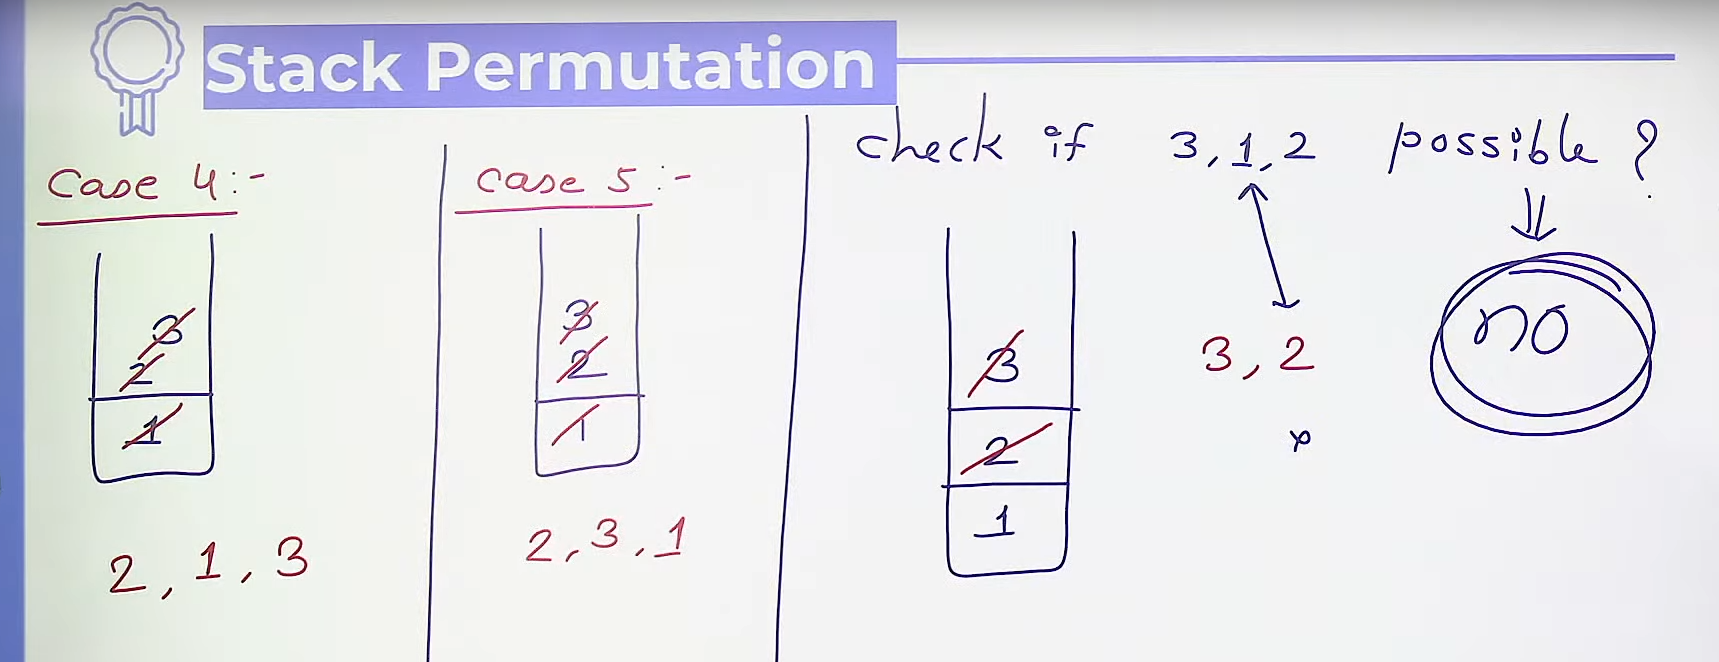 Stack Permutation
Case 4:-
3
2
1
2, 1, 3
Case 5:-
3
2
1
2, 3, 1
check if 3, 1, 2 possible ?
3
2
1
3, 2
x
no